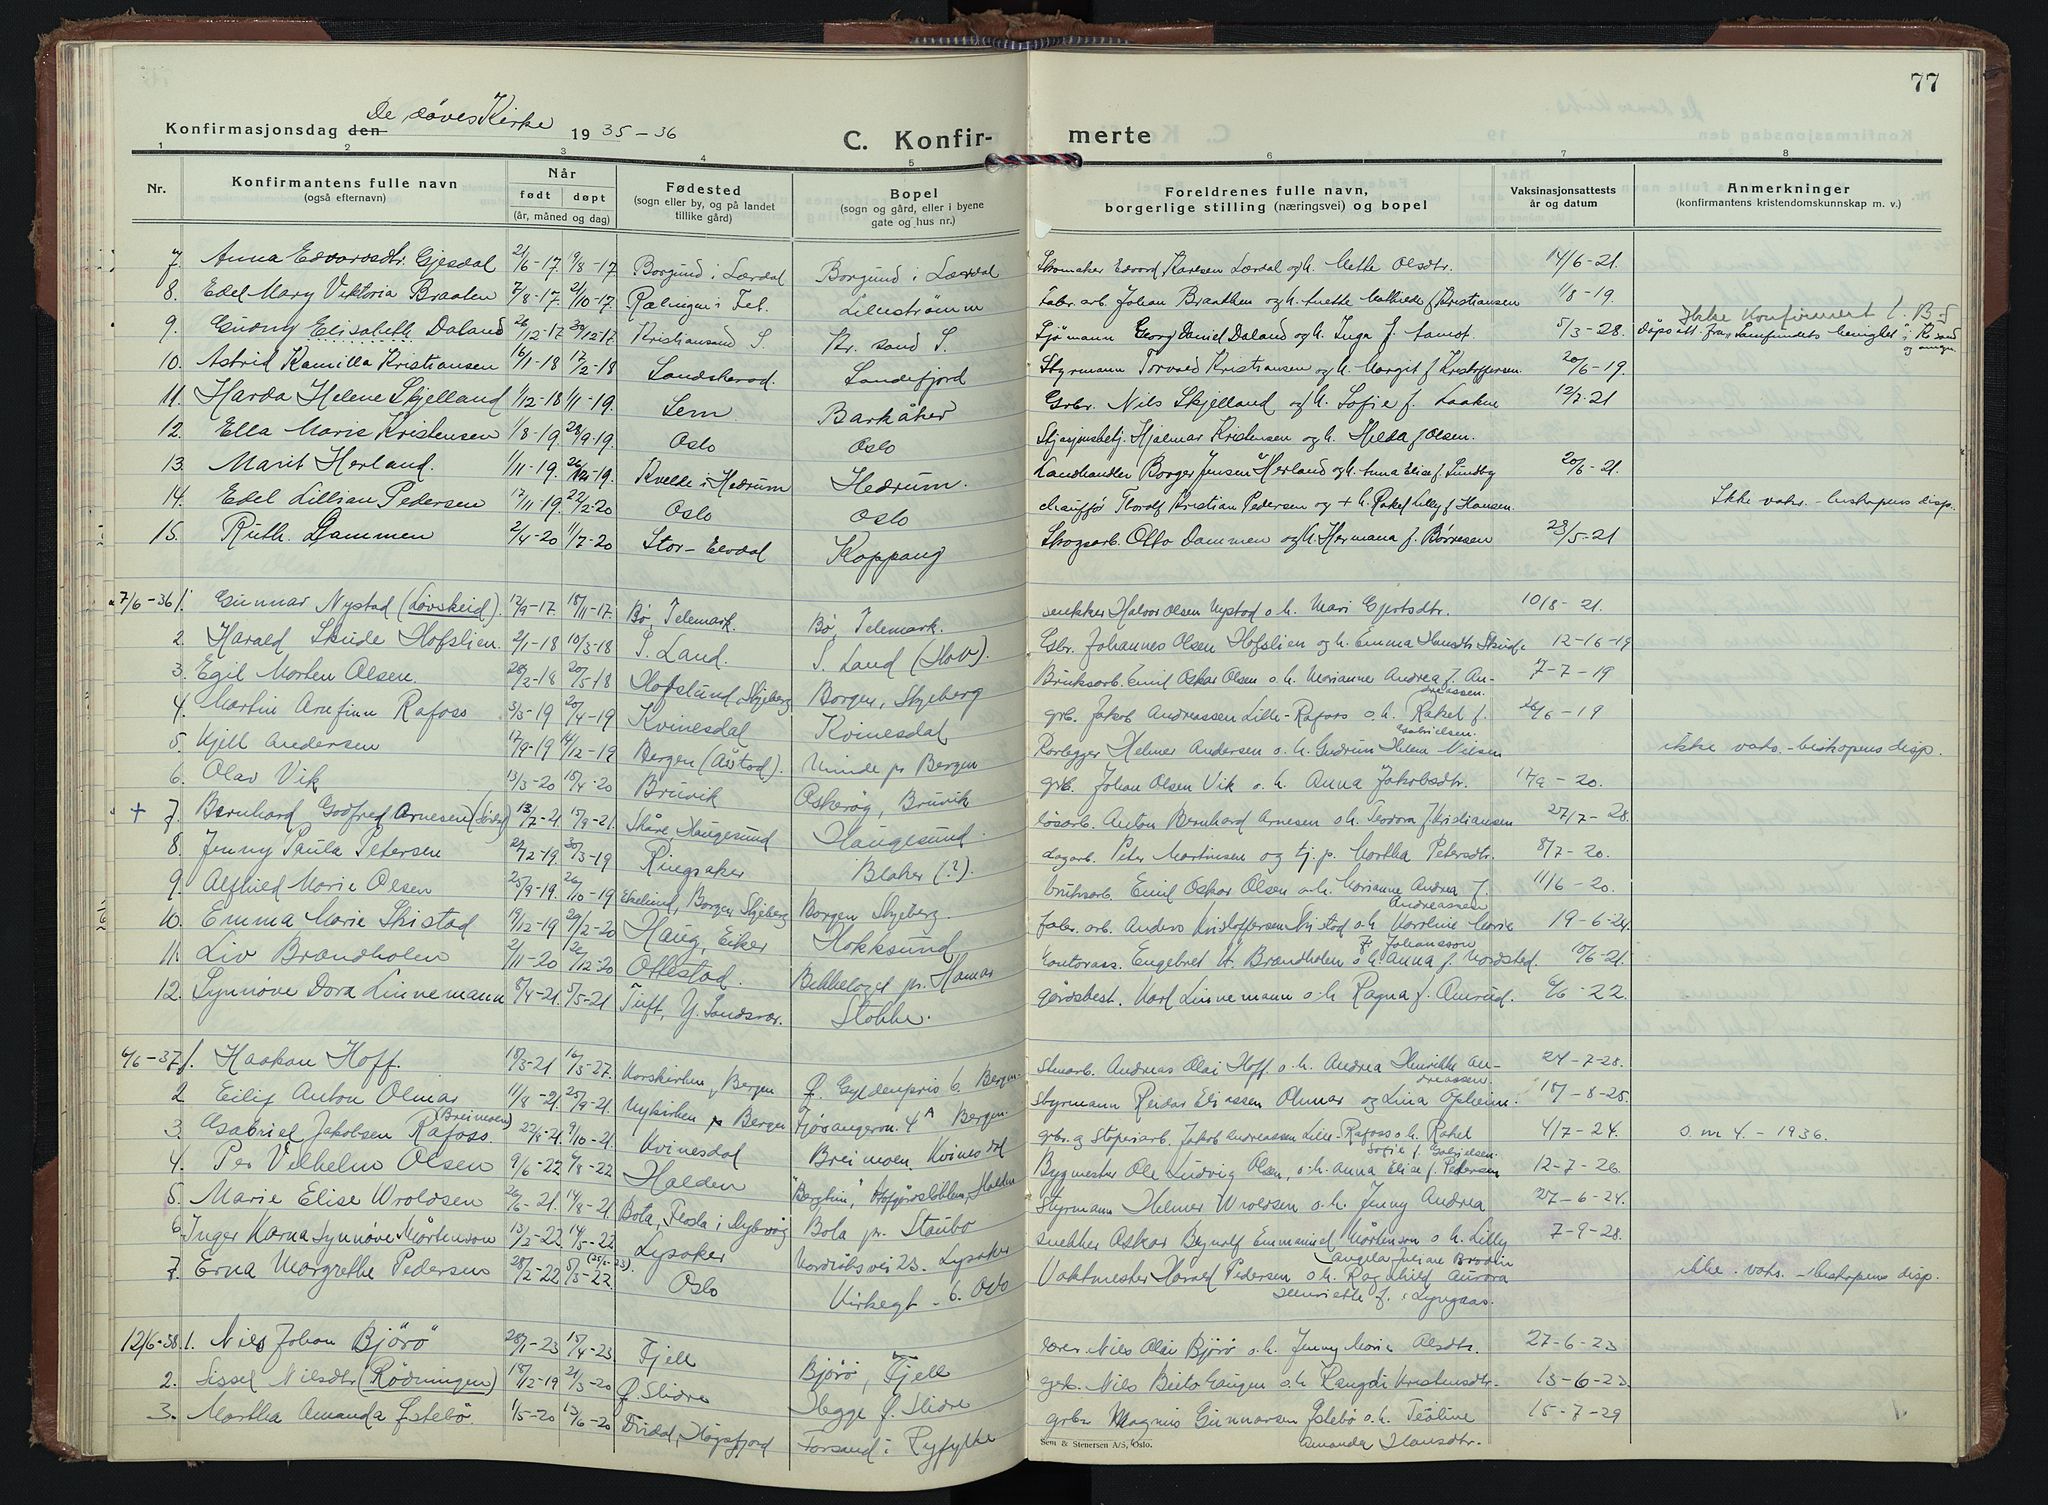 77
De døves Kirke
Konfirmasjonsdag den 1935-36
C. Konfir- merte
1 2 3 4 5 6 7 8
Nr. Konfirmantens fulle navn (også efternavn) Når født døpt (år, måned og dag) Fødested (sogn eller by, og på landet tillike gård) Bopel (sogn og gård, eller i byene gate og hus nr.) Foreldrenes fulle navn, borgerlige stilling (næringsvei) og bopel Vaksinasjonsattests år og datum Anmerkninger (konfirmantens kristendomskunnskap m. v.)
7. Anna Edvardsdtr. Gjesdal 2/6-17 9/8-17 Borgund i Lærdal Borgund i Lærdal Skomaker Edvard Karlsen Lærdal og h. Mette Olsdtr. 14/6-21.
8. Edel Mary Viktoria Braaten 7/8-17 21/10-17. Rælingen i Fet. Lillestrømm Fabr. arb. Johan Braathen og h. Anette Mathilde f. Kristiansen 1/8-19.
Ikke konfirmert
9. Gudny Elisabeth Daland 26/12-17 30/12-17. Kristiansand S. Kr. sand S. Sjømann Georg Daniel Daland og h. Inga f. Aamot. 5/3-28. dåpsatt. fra "Samfundets menighet" i Kr.sand og omegn
10. Astrid Kamilla Kristiansen 16/1-18 17/2-18 Landskerod. Sandefjord Styrmann Torvald Kristiansen og h. Margit f. Kristoffersen. 20/6-19.
11. Harda Helene Skjelland 1/12-18 1/1-19. Sem Barkåker Grbr. Nils Skjelland og h. Sofie f. 12/7-21
12. Ella Marie Kristensen 1/8-19 28/9-19. Oslo Oslo Stasjonsbetj. Hjalmar Kristensen og h. Hilda f. Olsen.
13. Marit Herland. 1/11-19. 26/12-19. Kvelle i Hedrum Hedrum. Landhandler Borger Jensen Herland og h. Anna Elise f. Sundby 20/6-21.
14. Edel Lillian Pedersen 17/11-19 22/2-20 Oslo Oslo chauffør Thorolf Kristian Pedersen og + h. Rakel Lilly f. Hansen. Ikke vaks. - biskopens disp.
15. Ruth Dammen 2/4-20 11/7-20 Stor-Elvdal Koppang Skogsarb. Otto Dammen og h. Hermana f. Børresen 23/5-21
7/6-36 1. Gunnar Nystad (Løvskeid). 12/9-17. 18/11-17. Bø, Telemark. Bø, Telemark. snekker Halvor Olsen Nystad o. h. Mari Gjertsdtr. 10/8-21.
2. Harald Skude Hofslien. 2/1-18 10/3-18 S. Land. S. Land (Hov). Gbr. Johannes Olsen Hofslien og h. Emma Hansdtr. Skude 12-16-19
3. Egil Morten Olsen. 28/2-18 20/5-18 Hofslund, Skjeberg Borgen, Skjeberg Bruksarb. Emil Oskar Olsen o. h. Marianne Andrea f. An-
dreassen. 7-7-19
4. Martin Arnfinn Rafoss 3/3-19 20/4-19 Kvinesdal Kvinesdal grb. Jakob Andreassen Lille-Rafoss o. h. Rakel f.
Gabrielsen. 26/6-19
5. Kjell Andersen 17/9-19 14/12-19 Bergen (Årstad). Minde pr Bergen Rørlegger Helmer Andersen o. h. Gudrun Helene Nilsen ikke vaks. - biskopens disp.
6. Olav Vik 13/3-20 18/4-20 Bruvik Askerøg, Bruvik grb. Johan Olsen Vik o. h. Anna Jakobsdtr. 17/9-20.
+ 7. Bernhard Godfred Arnesen 13/7-21. 18/9-21. Skåre, Haugesund Haugesund. løsarb. Anton Bernhard Arnesen o. h. Teodora f. Kristiansen 27/7-28.
8. Jenny Paula Petersen 22/2-19. 30/3-19 Ringsaker Blaker (?). dagarb. Peter Martinsen og tj. p. Martha Petersdtr. 8/7-20.
9. Alfhild Marie Olsen 25/9-19. 26/10-19 Ekelund, Borgen, Skjeberg Borgen Skjeberg. bruksarb. Emil Oskar Olsen o. h. Marianne Andrea f.
Andreassen 11/6-20.
10. Emma Marie Skistad 19/12-19 29/2-20 Haug, Eiker Hokksund fabr. arb. Anders Kristoffersen Skistad o. h. Karoline Marie
f. Johansson 19-6-24.
11. Liv Brændholen 2/11-20 26/12-20 Ottestad. Bekkelaget pr. Hamar kontorass. Engebret H. Brændholen o. h. Anna f. Nordsted. 10/6-21.
12. Synnøve Dora Linnemann 8/4-21. 5/5-21 Tuft, Y. Sandsvær. Stokke. gårdsbest. Karl Linnemann o. h. Ragna f. Amrud. 6/6-22.
6/6-37 1. Haakon Hoff. 18/3-21 16/5-27. Korskirken, Bergen Ø. Gyldenpris 6. Bergen. Stuarb. Andreas Olai Hoff. o. h. Andrea Henrikke An-
dreassen. 24-7-28.
2 Eilif Anton Olmar 11/8-21. 25/9-21. Nykirken Bergen Fjøsangervn. 4A Bergen. Styrmann Reidar Eliassen Olmar og Lina Opheim. 18/-8-25.
(Breimoen)
3. Gabriel Jakobsen Rafoss. 22/8-21. 9/10-21. Kvinesdal Breimoen, Kvinesdal grbr. og Støperiarb. Jakob Andreassen Lille-Rafoss o. h. Rakel
Sofie f. Gabrielsen. 4/7-24. o. nr 4.-1936.
4. Per Vilhelm Olsen 9/6-22 6/8-22 Halden "Bergheim," Halden Bygmester Ole Ludvig Olsen, o. h. Anna Elise f. Pedersen 12-7-26.
5. Marie Elise Wroldsen 26/6-21. 14/8-21 Bota, Flosta i Dybvåg Bota pr. Staubø Styrmann Helmer Wroldsen o. h. Jenny Andrea 27-6-24.
6. Inger Karna Synnøve Mårtenson 13/2-22 14/5-22 Lysaker Nordråksvei 23. Lysaker snekker Oskar Brynolf Emmanuel Mårtenson o. h. Lilly
Angela Juliane Brodin 7-9-28.
7. Erna Margrethe Pedersen 28/2-22 5/3-22 Oslo Kirkegt. 6. Oslo Vaktmester Harald Pedersen o. h. Ragnhild Aurora
Henriette f. Lyngaas. ikke vaks. - biskopens disp.
12/6-38. 1. Nils Johan Bjørø 28/1-23 15/4-23. Fjell Bjørø, Fjell Nils Olai Bjørø o. h. Jenny Marie Alsdtr. 27-6-23
2. Sissel Nilsdtr (Rødningen) 18/2-19 21/3-20 Ø. Slidre Hegge Ø. Slidre grb. Nils Beito Haugen o. h. Rangdi Kristensdtr. 13-6-23.
3. Martha Amanda Østebø. 1/5-20 13/6-20 Dirdal, Høgsfjord Forsand i Ryfylke grbr. Magnus Gunnarsen Østebø o. h. Teoline
Amanda Hansdtr. 15-7-29
Sem & Stenersen A/S, Oslo.